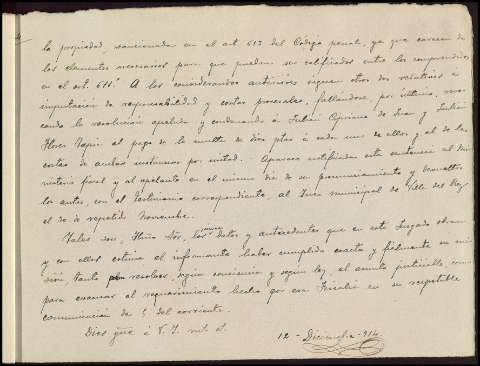 la propiedad, sancionada en el art. 613 del Código penal, ya que carecen de
los elementos necesarios para que puedan ser calificados entre los comprendidos
en el art. 611. A los considerandos anteriores siguen otros dos relativos á
imputación de responsabilidad y costas procesales, fallándose, por último, revo-
cando la resolución apelada y condenando á Julián Cipriano de y Julián
Flores Tapia al pago de la multa de diez ptas á cada uno de ellos y al de las
costas de ambas instancias por mitad. Aparece notificada esta sentencia al Mi-
nisterio fiscal y al apelante en el mismo día de su pronunciamiento y devueltos
los autos, con el testimonio correspondiente, al Juez municipal de Villa del Rey
el de repetido Noviembre.
Tales son, Iltmo Sor, los datos y antecedentes que en este Juzgado obran
y con ellos estima el informante haber cumplido exacta y fielmente su mi-
sión, tanto resolver, según conciencia y según ley, el asunto particular, como
para evacuar el requerimiento hecho por esa Fiscalía en su respetable
comunicación de 5 del corriente.
Dios gue á V. I. m. a.
12 - Diciembre - 914.